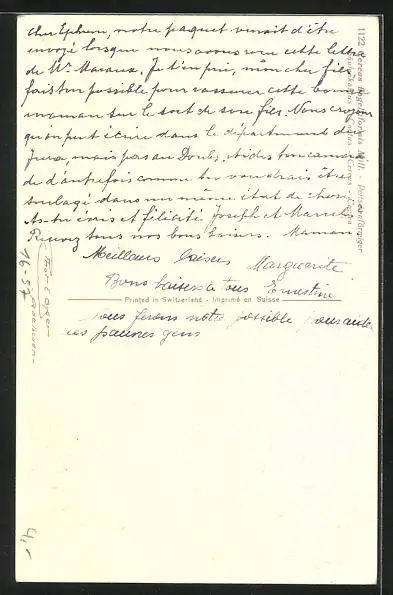 cher Ephrem, notre paquet venait d'être
envoyé lorsque nous avons reçu cette lettre
de Mr Je t'en prie, mon cher fils
fais ton possible pour rassurer cette bonne
maman sur le sort de son fils. Nous croyons
qu'on peut écrire dans le département du
Jura, mais pas au Doubs. Aides ton camara
de d'autrefois comme tu voudrais être
soulagé dans un même état de choses.
As-tu écris et félicité Joseph et
Recevez tous nos bons baisers. Maman
Meilleurs baisers Marguerite
Bons baisers à tous Ernestine
Printed in Switzerland - Imprimé en Suisse
vous ferons notre possible pour aider
ces pauvres gens
1122
16-57
4,-